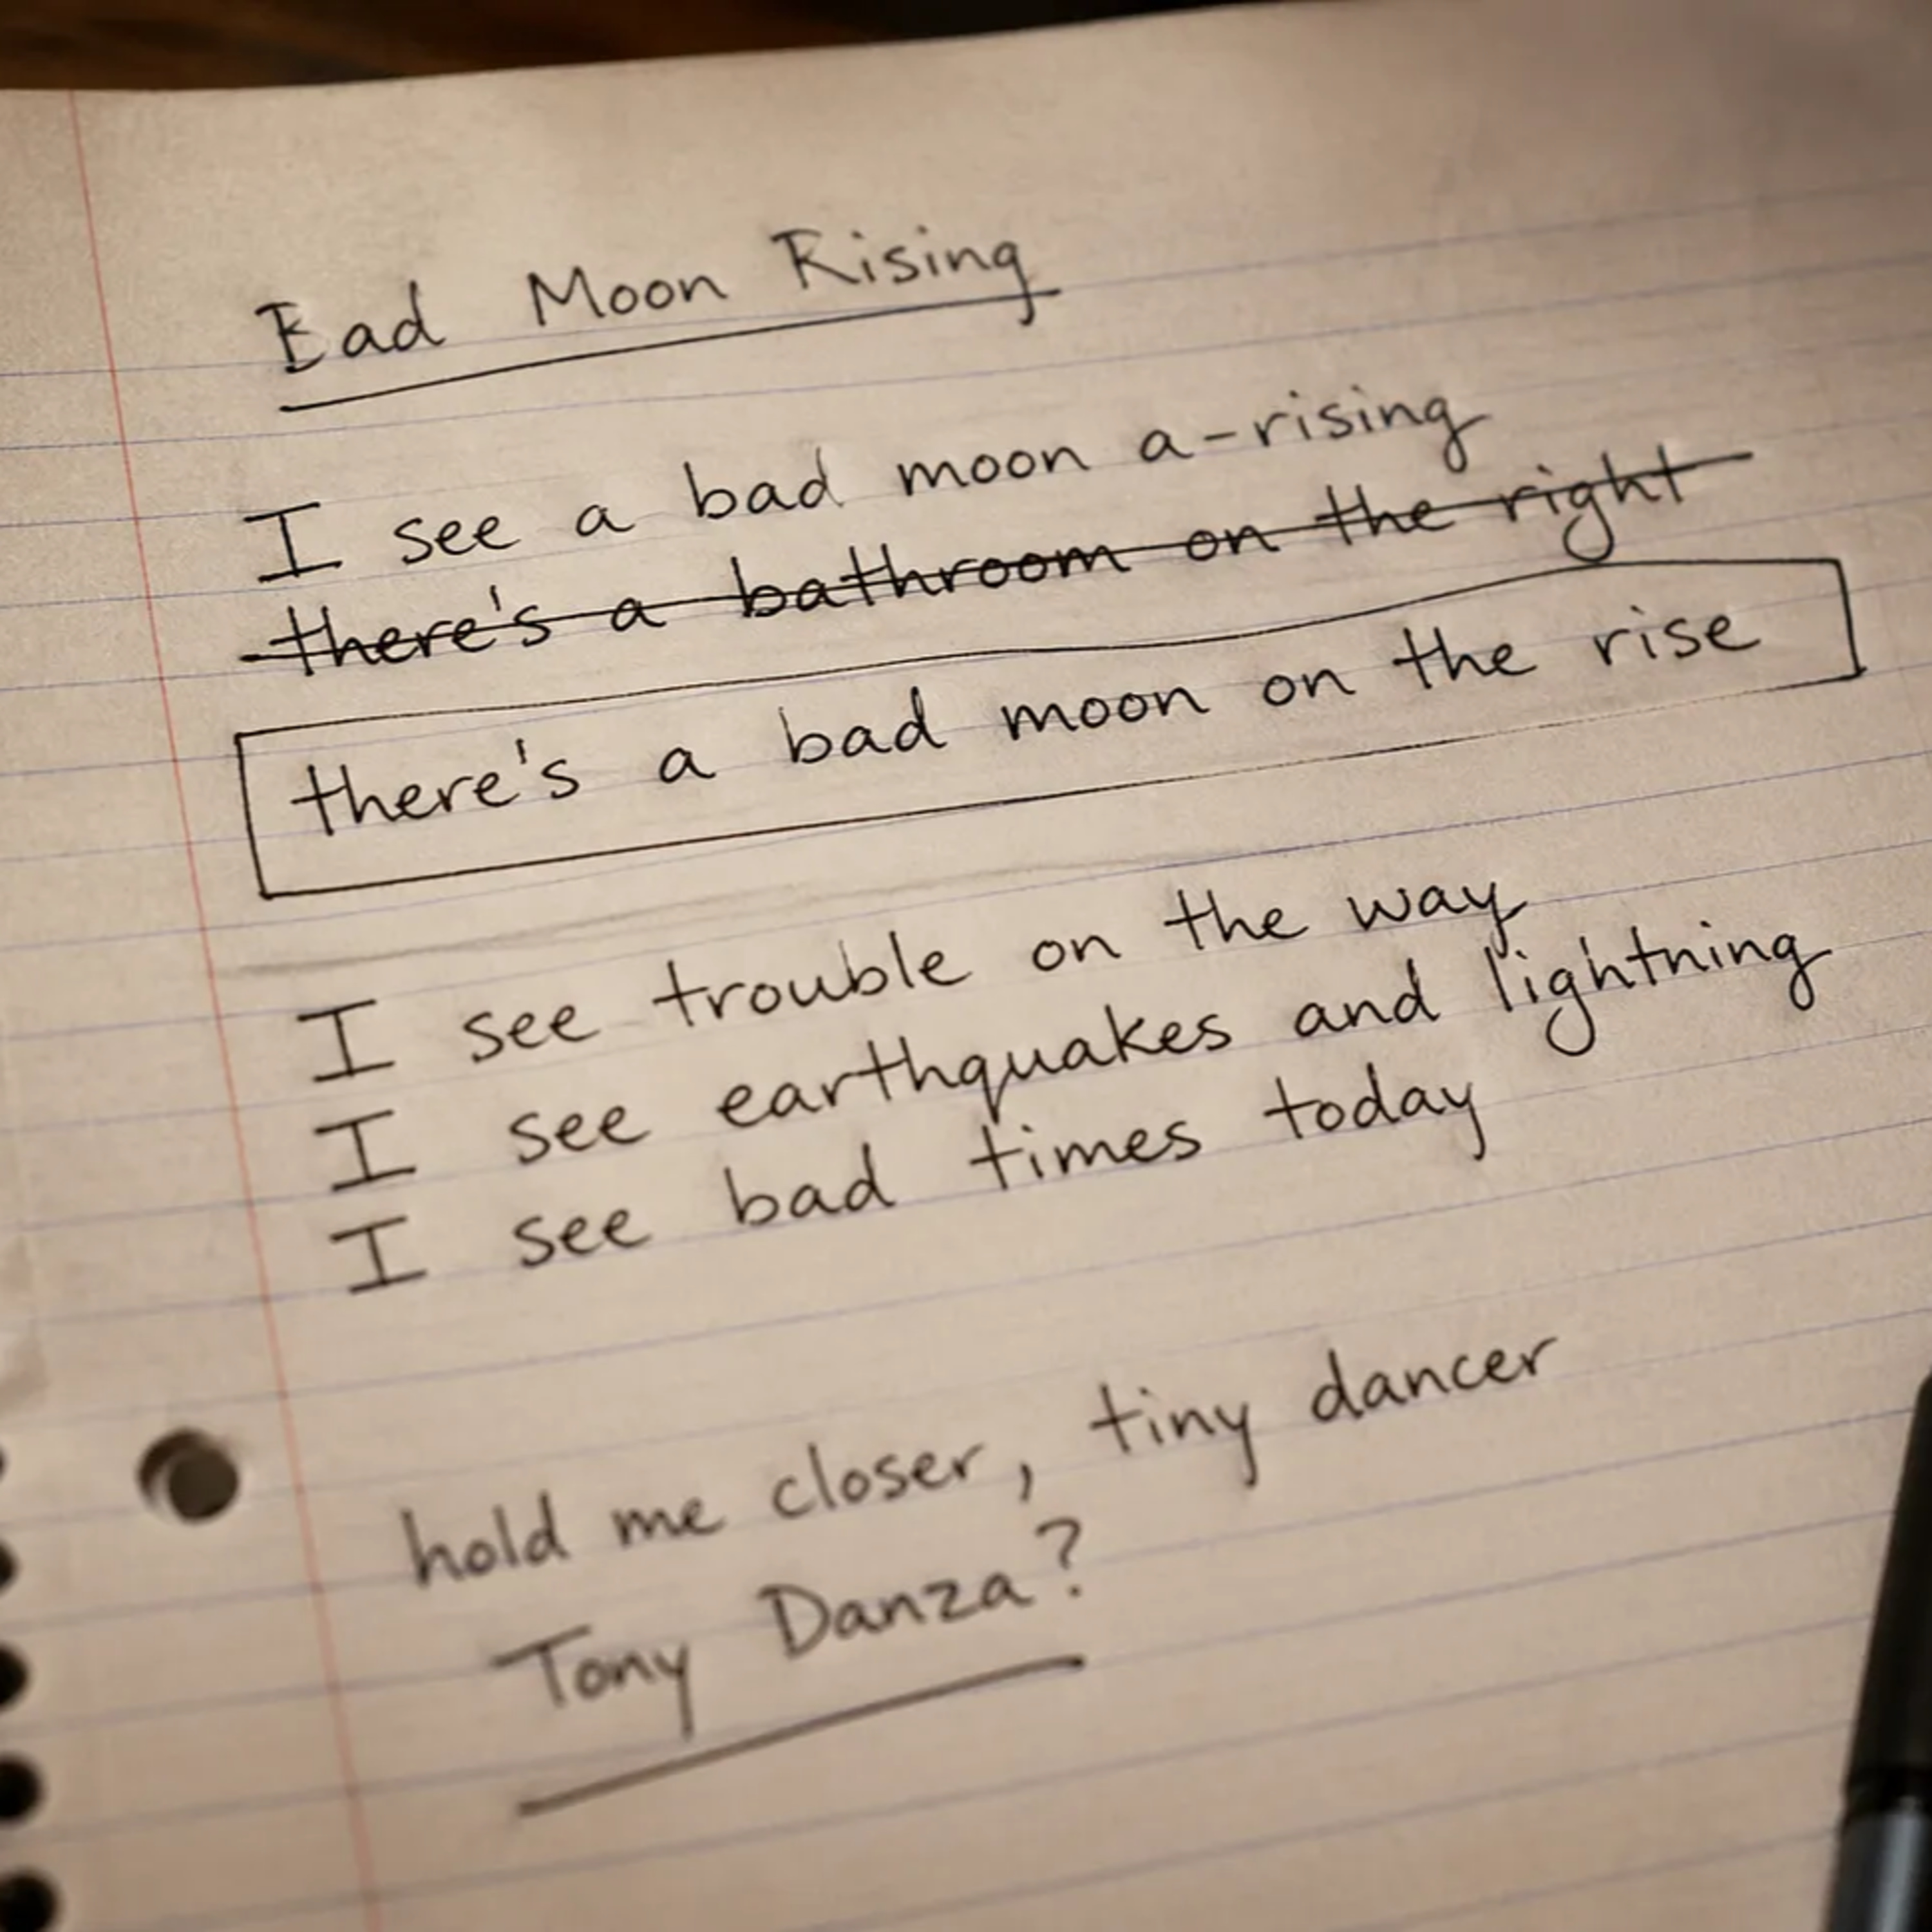 Bad Moon Rising
I see a bad moon a-rising
there's a bathroom on the right
there's a bad moon on the rise
I see trouble on the way
I see earthquakes and lightning
I see bad times today
hold me closer, tiny dancer
Tony Danza?